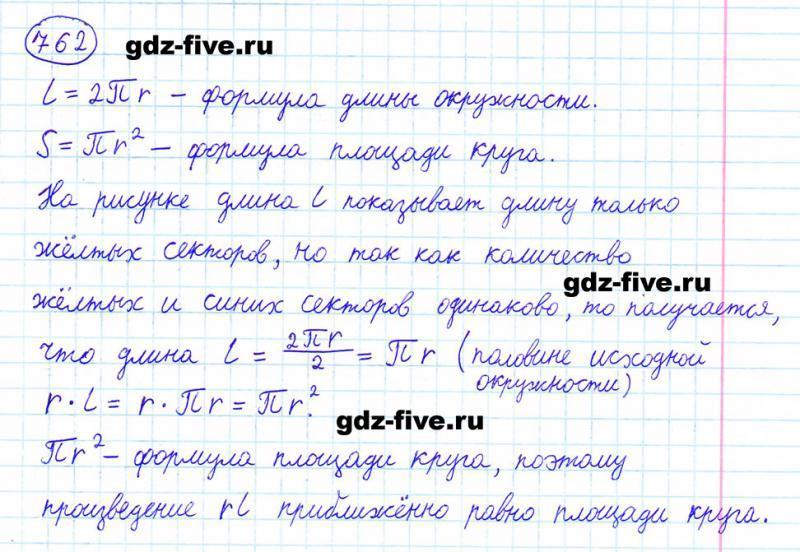 762 gdz-five.ru
l = 2πr – формула длины окружности.
S = πr² – формула площади круга.
На рисунке длина l показывает длину только
жёлтых секторов, но так как количество
gdz-five.ru
жёлтых и синих секторов одинаково, то получается,
что длина l = 2πr/2 = πr (половине исходной
окружности)
r · l = r · πr = πr².
gdz-five.ru
πr² – формула площади круга, поэтому
произведение rl приближённо равно площади круга.